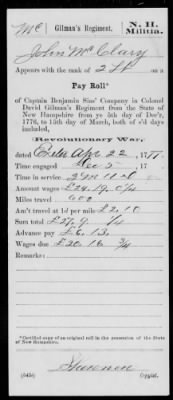 Mc Gilman's Regiment. N. H. Militia.
John McClary
Appears with the rank of 2 Lt on a
Pay Roll*
of Captain Benjamin Sias' Company in Colonel
David Gilman's Regiment from the State of
New Hampshire from ye 5th day of Dec'r,
1776, to 15th day of March, both of s'd days
included,
Revolutionary War,
dated Exeter Apr 22, 1777.
Time engaged Dec 5 177
Time in service 2 M 11 d
Amount wages £ 24.19. 0/4
Miles travel
Am't travel at 1d per mile £ 2.10
Sum total £ 27.9 1/4
Advance pay £ 6.13.
Wages due £ 20.16 3/4
Remarks:
*Certified copy of an original roll in the possession of the State
of New Hampshire.
(545b) Copyist.